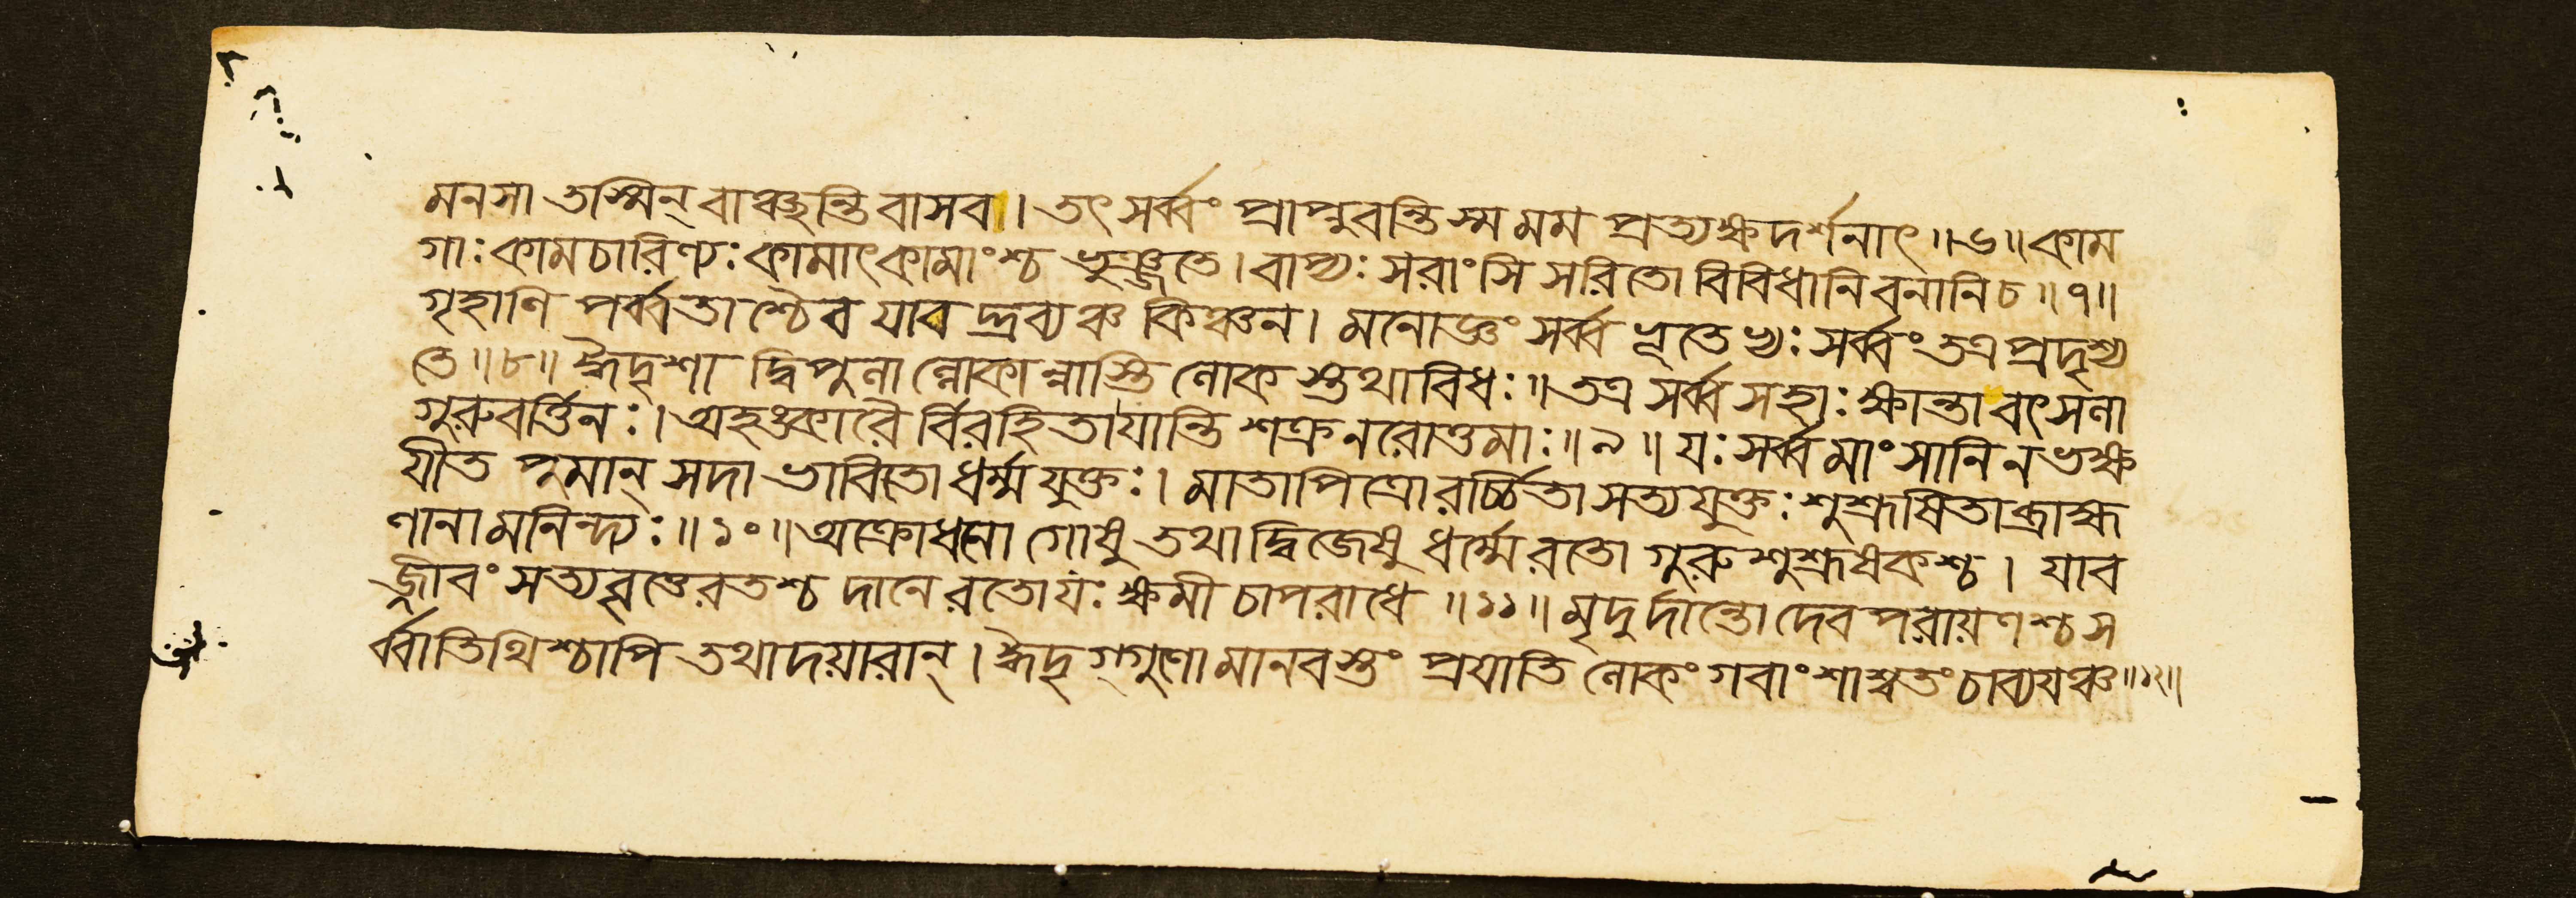 মনসা তস্মিন্ বাঞ্ছন্তি বাসব। তৎ সর্ব্বং প্রাপ্নুবন্তি স্ম মম প্রত্যক্ষদর্শনাৎ॥৬॥ কাম
গাঃ কামচারিণ্যঃ কামাৎ কামাংশ্চ ভুঞ্জতে। বাপ্যঃ সরাংসি সরিতো বিবিধানি বনানি চ॥৭॥
গৃহাণি পর্ব্বতাশ্চৈব যাবদ্দ্রব্যঞ্চ কিঞ্চন। মনোজ্ঞং সর্ব্বভূতেভ্যঃ সর্ব্বং তত্র প্রদৃশ্য
তে॥৮॥ ঈদৃশা দ্বিপুলা ল্লোকান্নাস্তি লোকস্তথাবিধঃ॥ তত্র সর্ব্বসহাঃ ক্ষান্তা বৎসলা
গুরুবর্ত্তিনঃ। অহঙ্কারৈর্বিরহিতা যান্তি শক্র নরোত্তমাঃ॥৯॥ যঃ সর্ব্বমাংসানি ন ভক্ষ
যীত পুমান্ সদা ভাবিতো ধর্ম্মযুক্তঃ। মাতাপিত্রোরর্চ্চিতা সত্যযুক্তঃ শুশ্রূষিতা ব্রাহ্ম
ণানামনিন্দ্যঃ॥১০॥ অক্রোধনো গোষু তথা দ্বিজেষু ধর্ম্মে রতো গুরুশুশ্রূষকশ্চ। যাব
জ্জীবং সত্যবৃত্তে রতশ্চ দানে রতো যঃ ক্ষমী চাপরাধে॥১১॥ মৃদুর্দান্তো দেবপরায়ণশ্চ স
র্ব্বাতিথিশ্চাপি তথা দয়াবান্। ঈদৃগ্গুণো মানবস্তং প্রযাতি লোকং গবাং শাশ্বতং চাব্যযঞ্চ॥১২॥